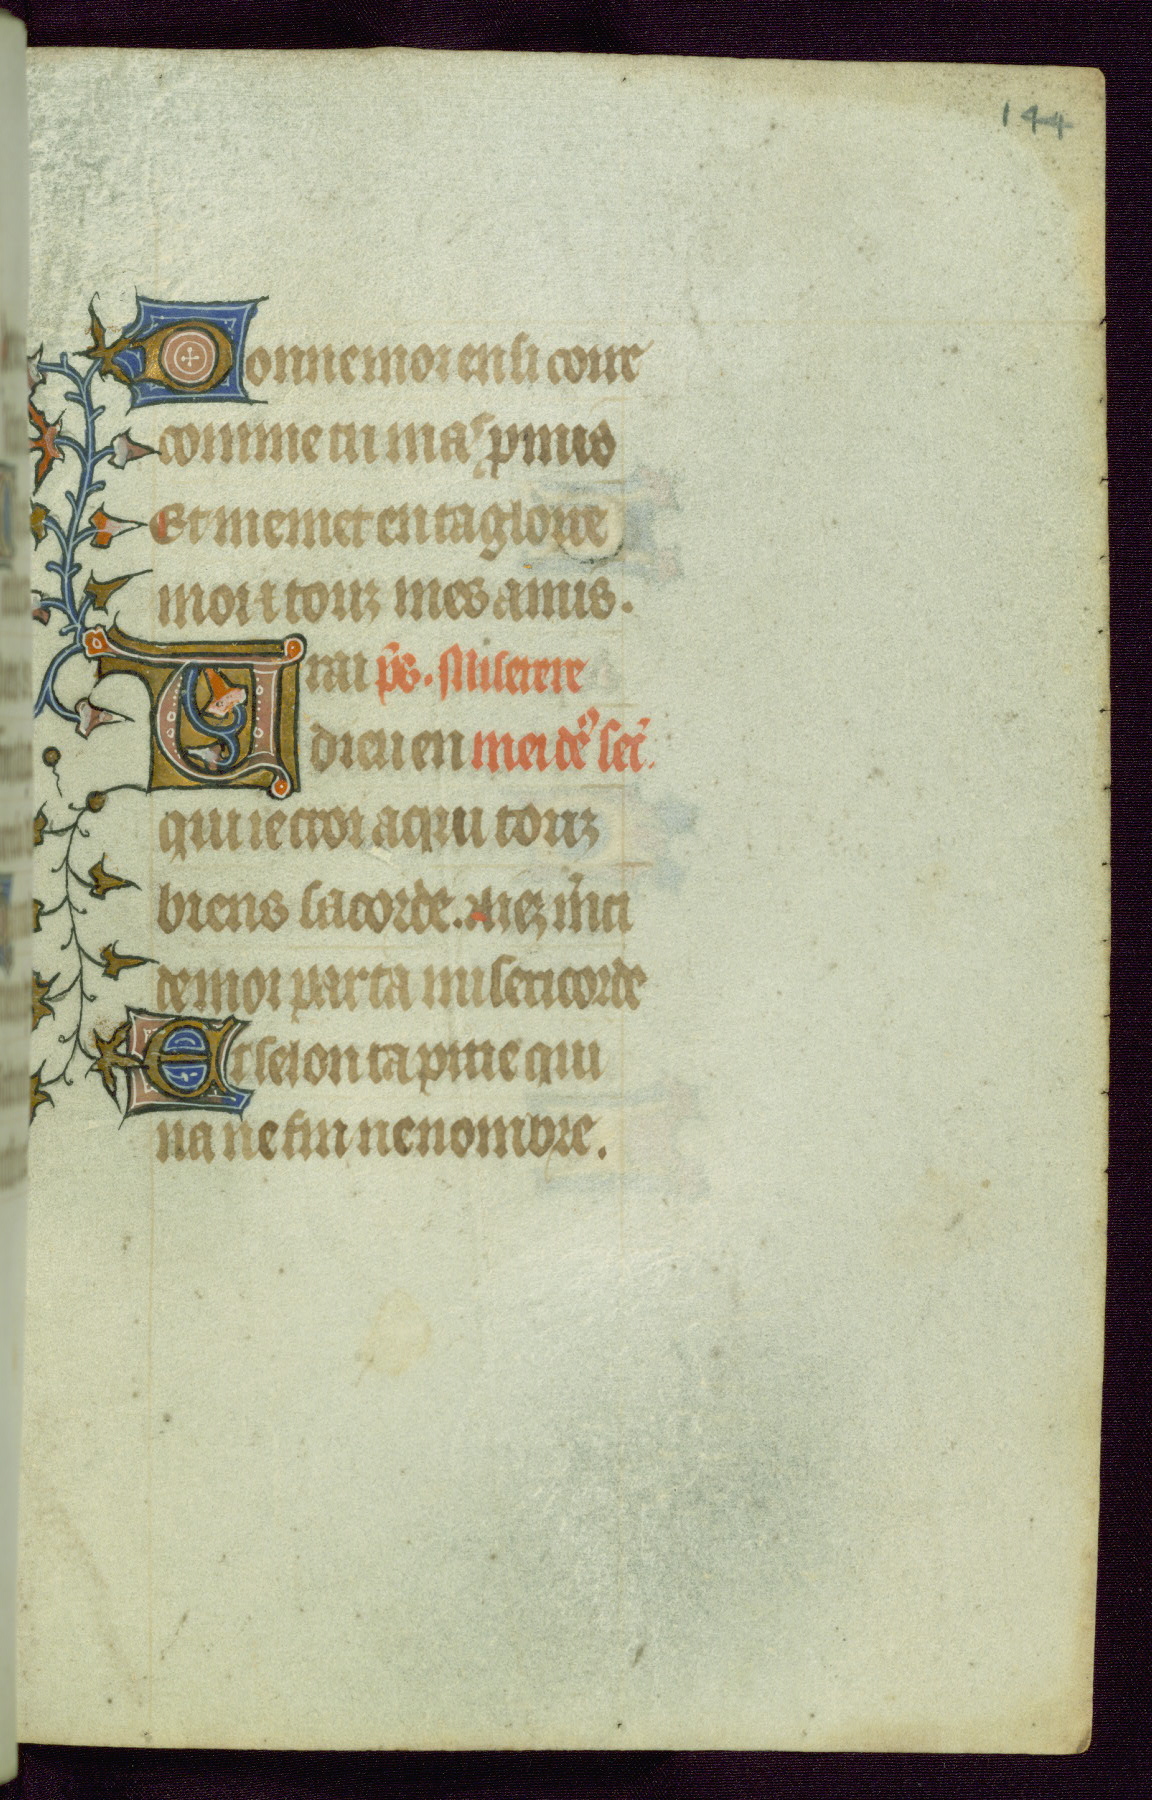 144
Donne moi en si coure
comme tu mas pmis
Et me met en ta gloire
moi ⁊ touz mes amis.
Urai p̄s. Miserere
dieu en mei de᷒ sec̄.
qui ie croi a qui touz
biens sacorde. Aiez m̄ci
de moi par ta misericorde
Et selon ta pitie qui
na ne fin ne nombre.